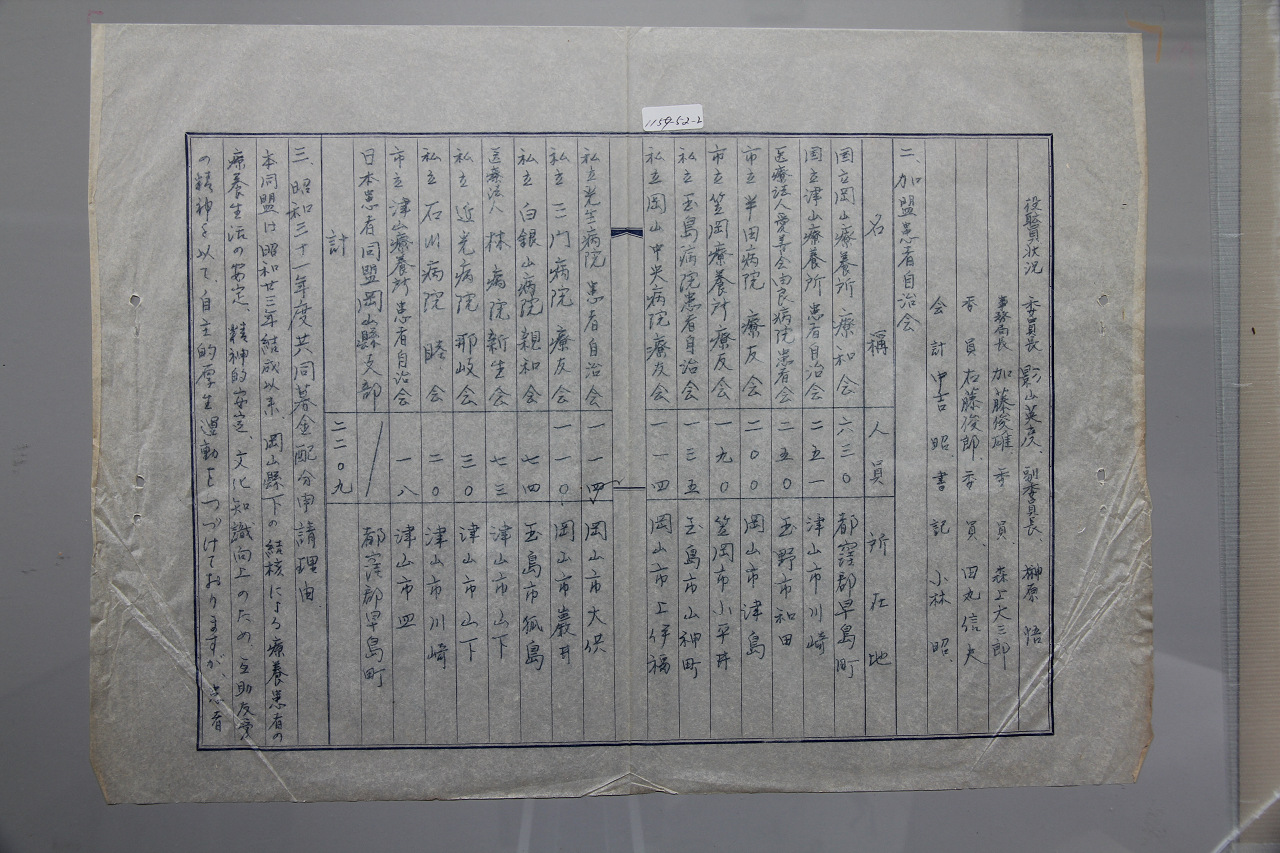 1154-52-2
役職員状況 委員長 影山英度、副委員長、榊原 悟
事務局長 加藤俊雄 委員、森上大三郎
委員 右藤俊郎、委員、田丸信夫
会計 中吉 昭、書記 小林 昭、
二、加盟患者自治会
名称 人員 所在地
国立岡山療養所 療和会 六三〇 都窪郡早島町
国立津山療養所 患者自治会 二五一 津山市川崎
医療法人愛善会由良病院患者会 二五〇 玉野市和田
市立半田病院 療友会 二〇〇 岡山市津島
市立笠岡療養所療友会 一九〇 笠岡市小平井
私立玉島病院患者自治会 一三五 玉島市山神町
私立岡山中央病院療友会 一一四 岡山市上伊福
私立光生病院 患者自治会 一一四 岡山市大供
私立三門病院 療友会 一一〇 岡山市巌井
私立白銀山病院親和会 七四 玉島市狐島
医療法人 林病院新生会 七三 津山市山下
私立近光病院 那岐会 三〇 津山市山下
私立石川病院 睦会 二〇 津山市川崎
市立津山療養所患者自治会 一八 津山市
日本患者同盟岡山縣支部 都窪郡早島町
計 二二〇九
三、昭和三十一年度共同募金配分申請理由
本同盟は昭和廿三年結成以来、岡山縣下の結核による療養患者の
療養生活の安定、精神的安定、文化知識向上のため互助友愛
の精神を以て、自主的厚生運動をつづけておりますが、患者